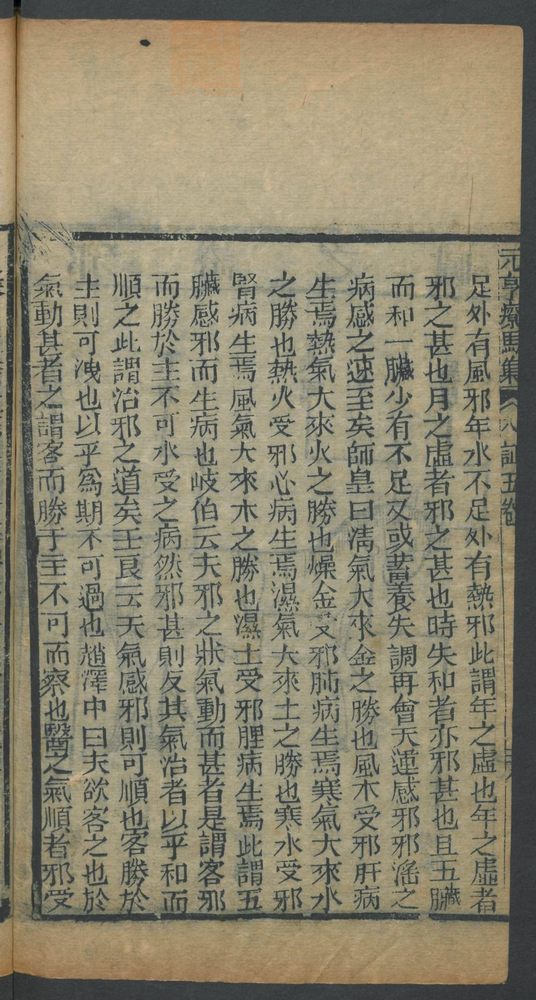 元亨療馬集 八証五卷
足外有風邪年水不足外有熱邪此謂年之虛也年之虛者
邪之甚也月之虛者邪之甚也時失和者亦邪甚也且五臟
而和一臟少有不足又或蓄養失調再會天運感邪邪滛之
病感之速至矣師皇曰淸氣大來金之勝也風木受邪肝病
生焉熱氣大來火之勝也燥金受邪肺病生焉寒氣大來水
之勝也熱火受邪心病生焉濕氣大來土之勝也寒水受邪
腎病生焉風氣大來木之勝也濕土受邪脾病生焉此謂五
臟感邪而生病也岐伯云夫邪之狀氣動而甚者是謂客邪
而勝於主不可水受之病然邪甚則反其氣治者以乎和而
順之此謂治邪之道矣王良云天氣感邪則可順也客勝於
主則可洩也以平爲期不可過也趙澤中曰夫欲客之也於
氣動甚者之謂客而勝于主不可而察也醫之氣順者邪受